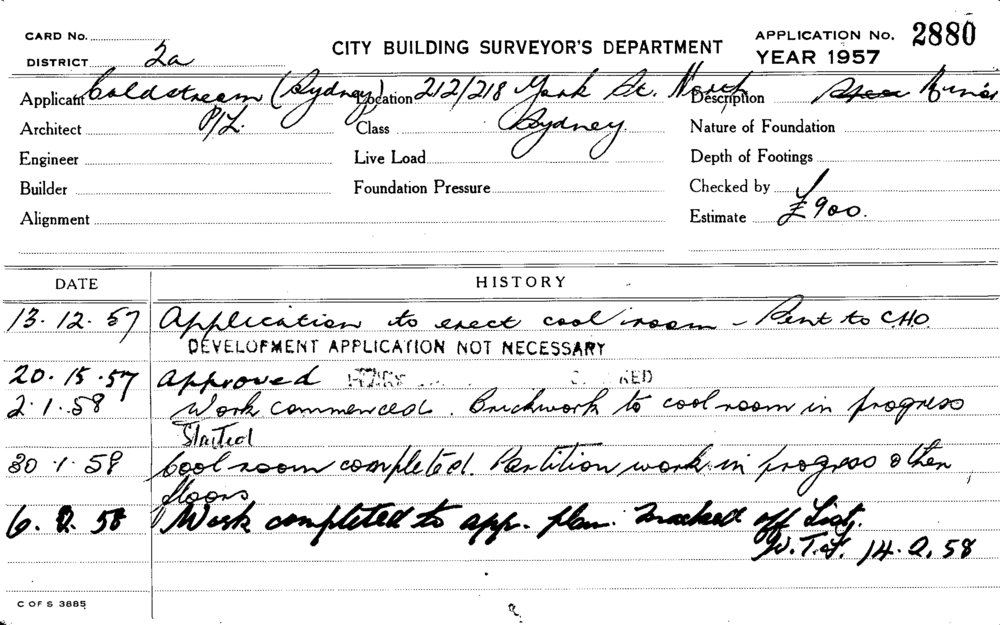 CARD No.
CITY BUILDING SURVEYOR'S DEPARTMENT
APPLICATION No. 2880
DISTRICT 2a
YEAR 1957
Applicant Coldstream (Sydney) P/L. Location 212/218 York St. North Sydney. Description
Architect Class Nature of Foundation
Engineer Live Load Depth of Footings
Builder Foundation Pressure Checked by
Alignment Estimate £900.
DATE HISTORY
13.12.57 Application to erect cool room - Sent to C.H.O.
DEVELOPMENT APPLICATION NOT NECESSARY
20.15.57 Approved
2.1.58 Work commenced. Brickwork to cool room in progress
Started
30.1.58 Cool room completed. Partition work in progress other
floors
6.2.58 Work completed to app. plan. Marked off List.
W.T.F. 14.2.58
C OF S 3885